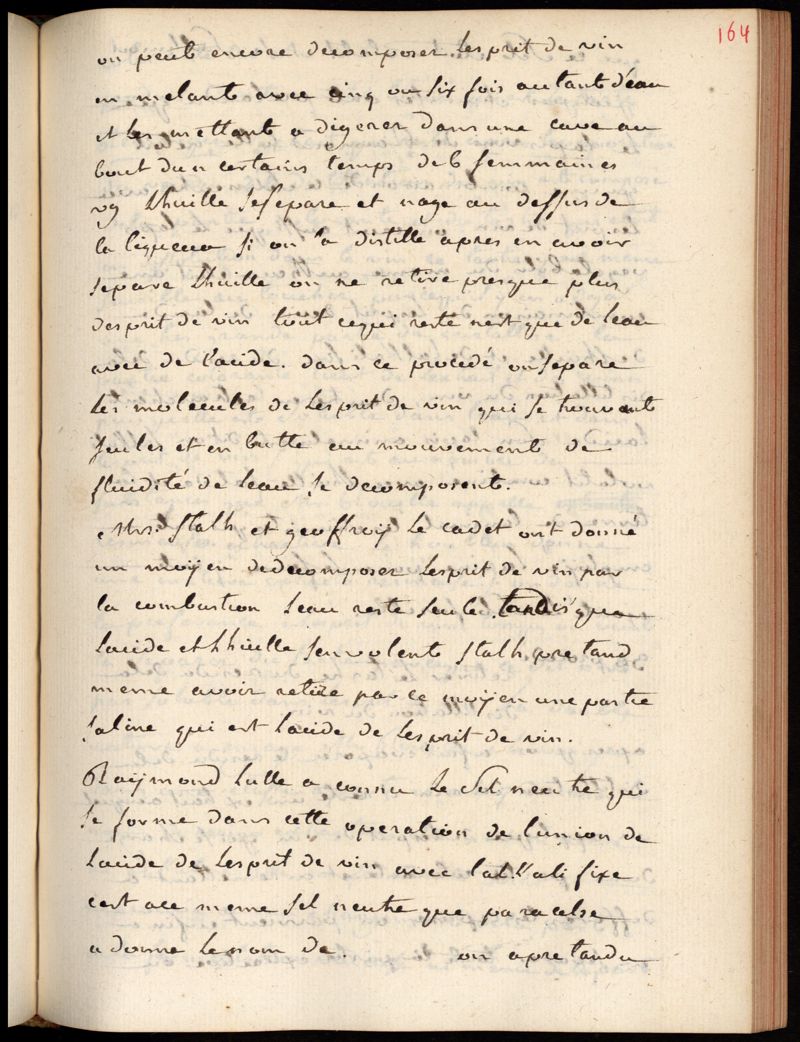 164
on peut encore decomposer lesprit de vin
en melant avec cinq ou six fois autant deau
et les mettant a digerer dans une cave au
bout dun certains temps de 6 semmaines
Lhuille se separe et nage au dessus de
la liqueur si on la distille apres en avoir
separe Lhuille on ne retire presque plus
desprit de vin tout cequi reste nest que de leau
avec de l'acide. dans ce procedé on separe
les molecules de Lesprit de vin qui se trouvant
seules et en butte au mouvement de
fluidité de Leau se decomposent.
Mrs Stalh et geoffroy Le cadet ont donné
un moyen dedecomposer Lesprit de vin par
la combustion Leau reste seule. tandis que
Lacide et Lhuille senvolent Stalh pretand
meme avoir retire par ce moyen une partie
saline qui est lacide de Lesprit de vin.
Raymond Lulle a connu Le Sel neutre qui
se forme dans cette operation de l'union de
Lacide de Lesprit de vin avec lalkali fixe
cest ace meme sel neutre que paracelse
a donne Lenom de. on apretandu